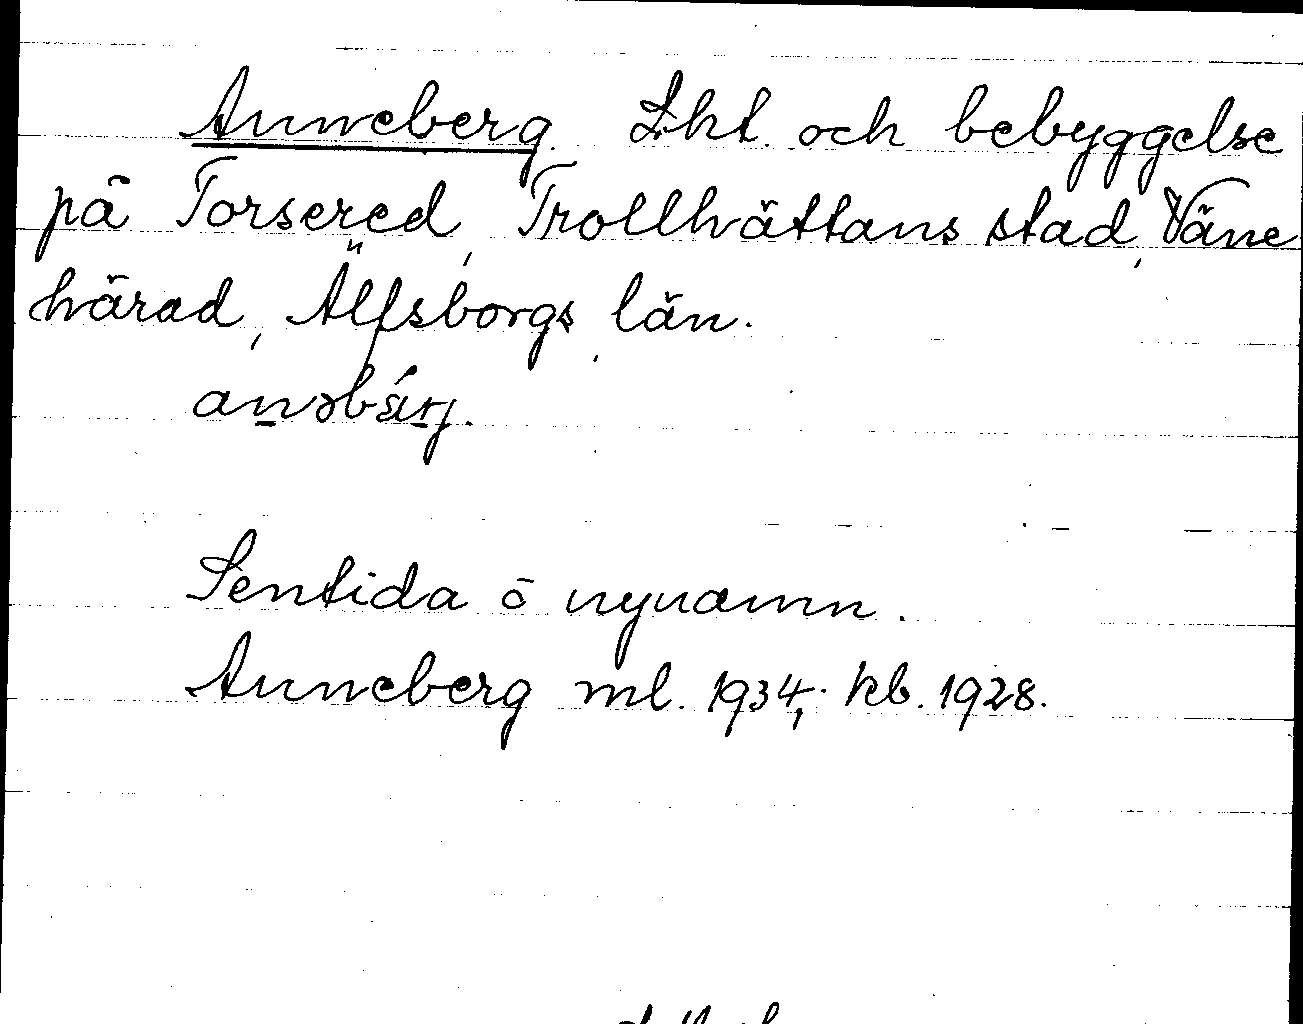 Anneberg. Lht. och bebyggelse
på Torsered, Trollhättans stad, Väne
härad, Älfsborgs län.
anəbárj.
Sentida ō nynamn.
Anneberg ml. 1934; kb. 1928.